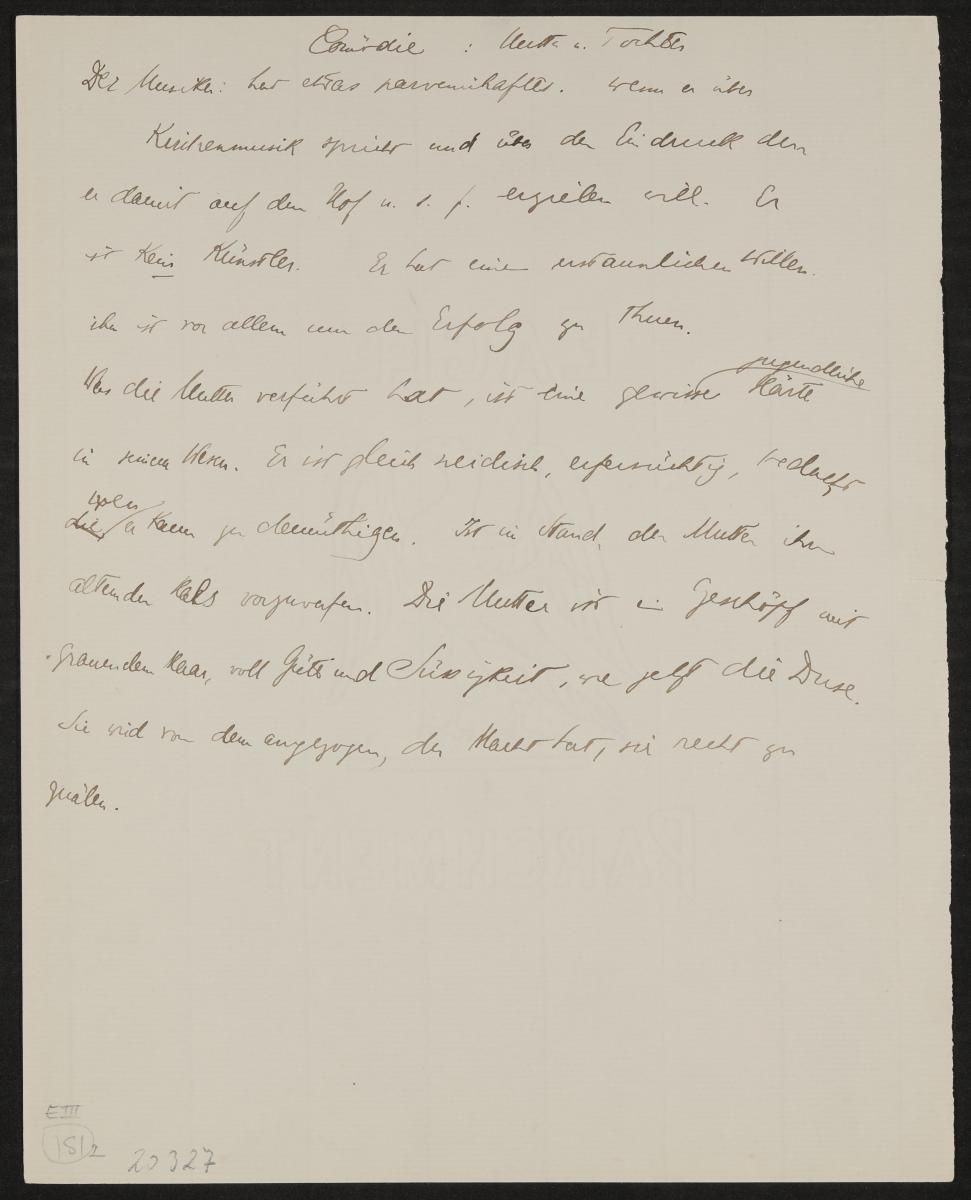 Comödie : Mutter u. Tochter
Der Musiker: hat etwas parvenuhaftes. wenn er über
Kirchenmusik spricht und über den Eindruck den
er damit auf den Hof u. s. f. erzielen will. Er
ist kein Künstler. Er hat einen erstaunlichen Willen.
ihm ist vor allem um den Erfolg zu thuen.
jugendliche
Was die Mutter verführt hat, ist eine gewisse Härte
in seinem Wesen. Er ist gleich neidisch, eifersüchtig, bedacht
wen
die er kann zu demüthigen. Ist im Stand, der Mutter ihren
alternden Hals vorzuwerfen. Die Mutter ist ein Geschöpf mit
grauendem Haar, voll Güte und Süssigkeit, wie jetzt die Duse.
Sie wird von dem angezogen, der Macht hat, sie recht zu
quälen.
E III
181 2
20327
PARCHMENT